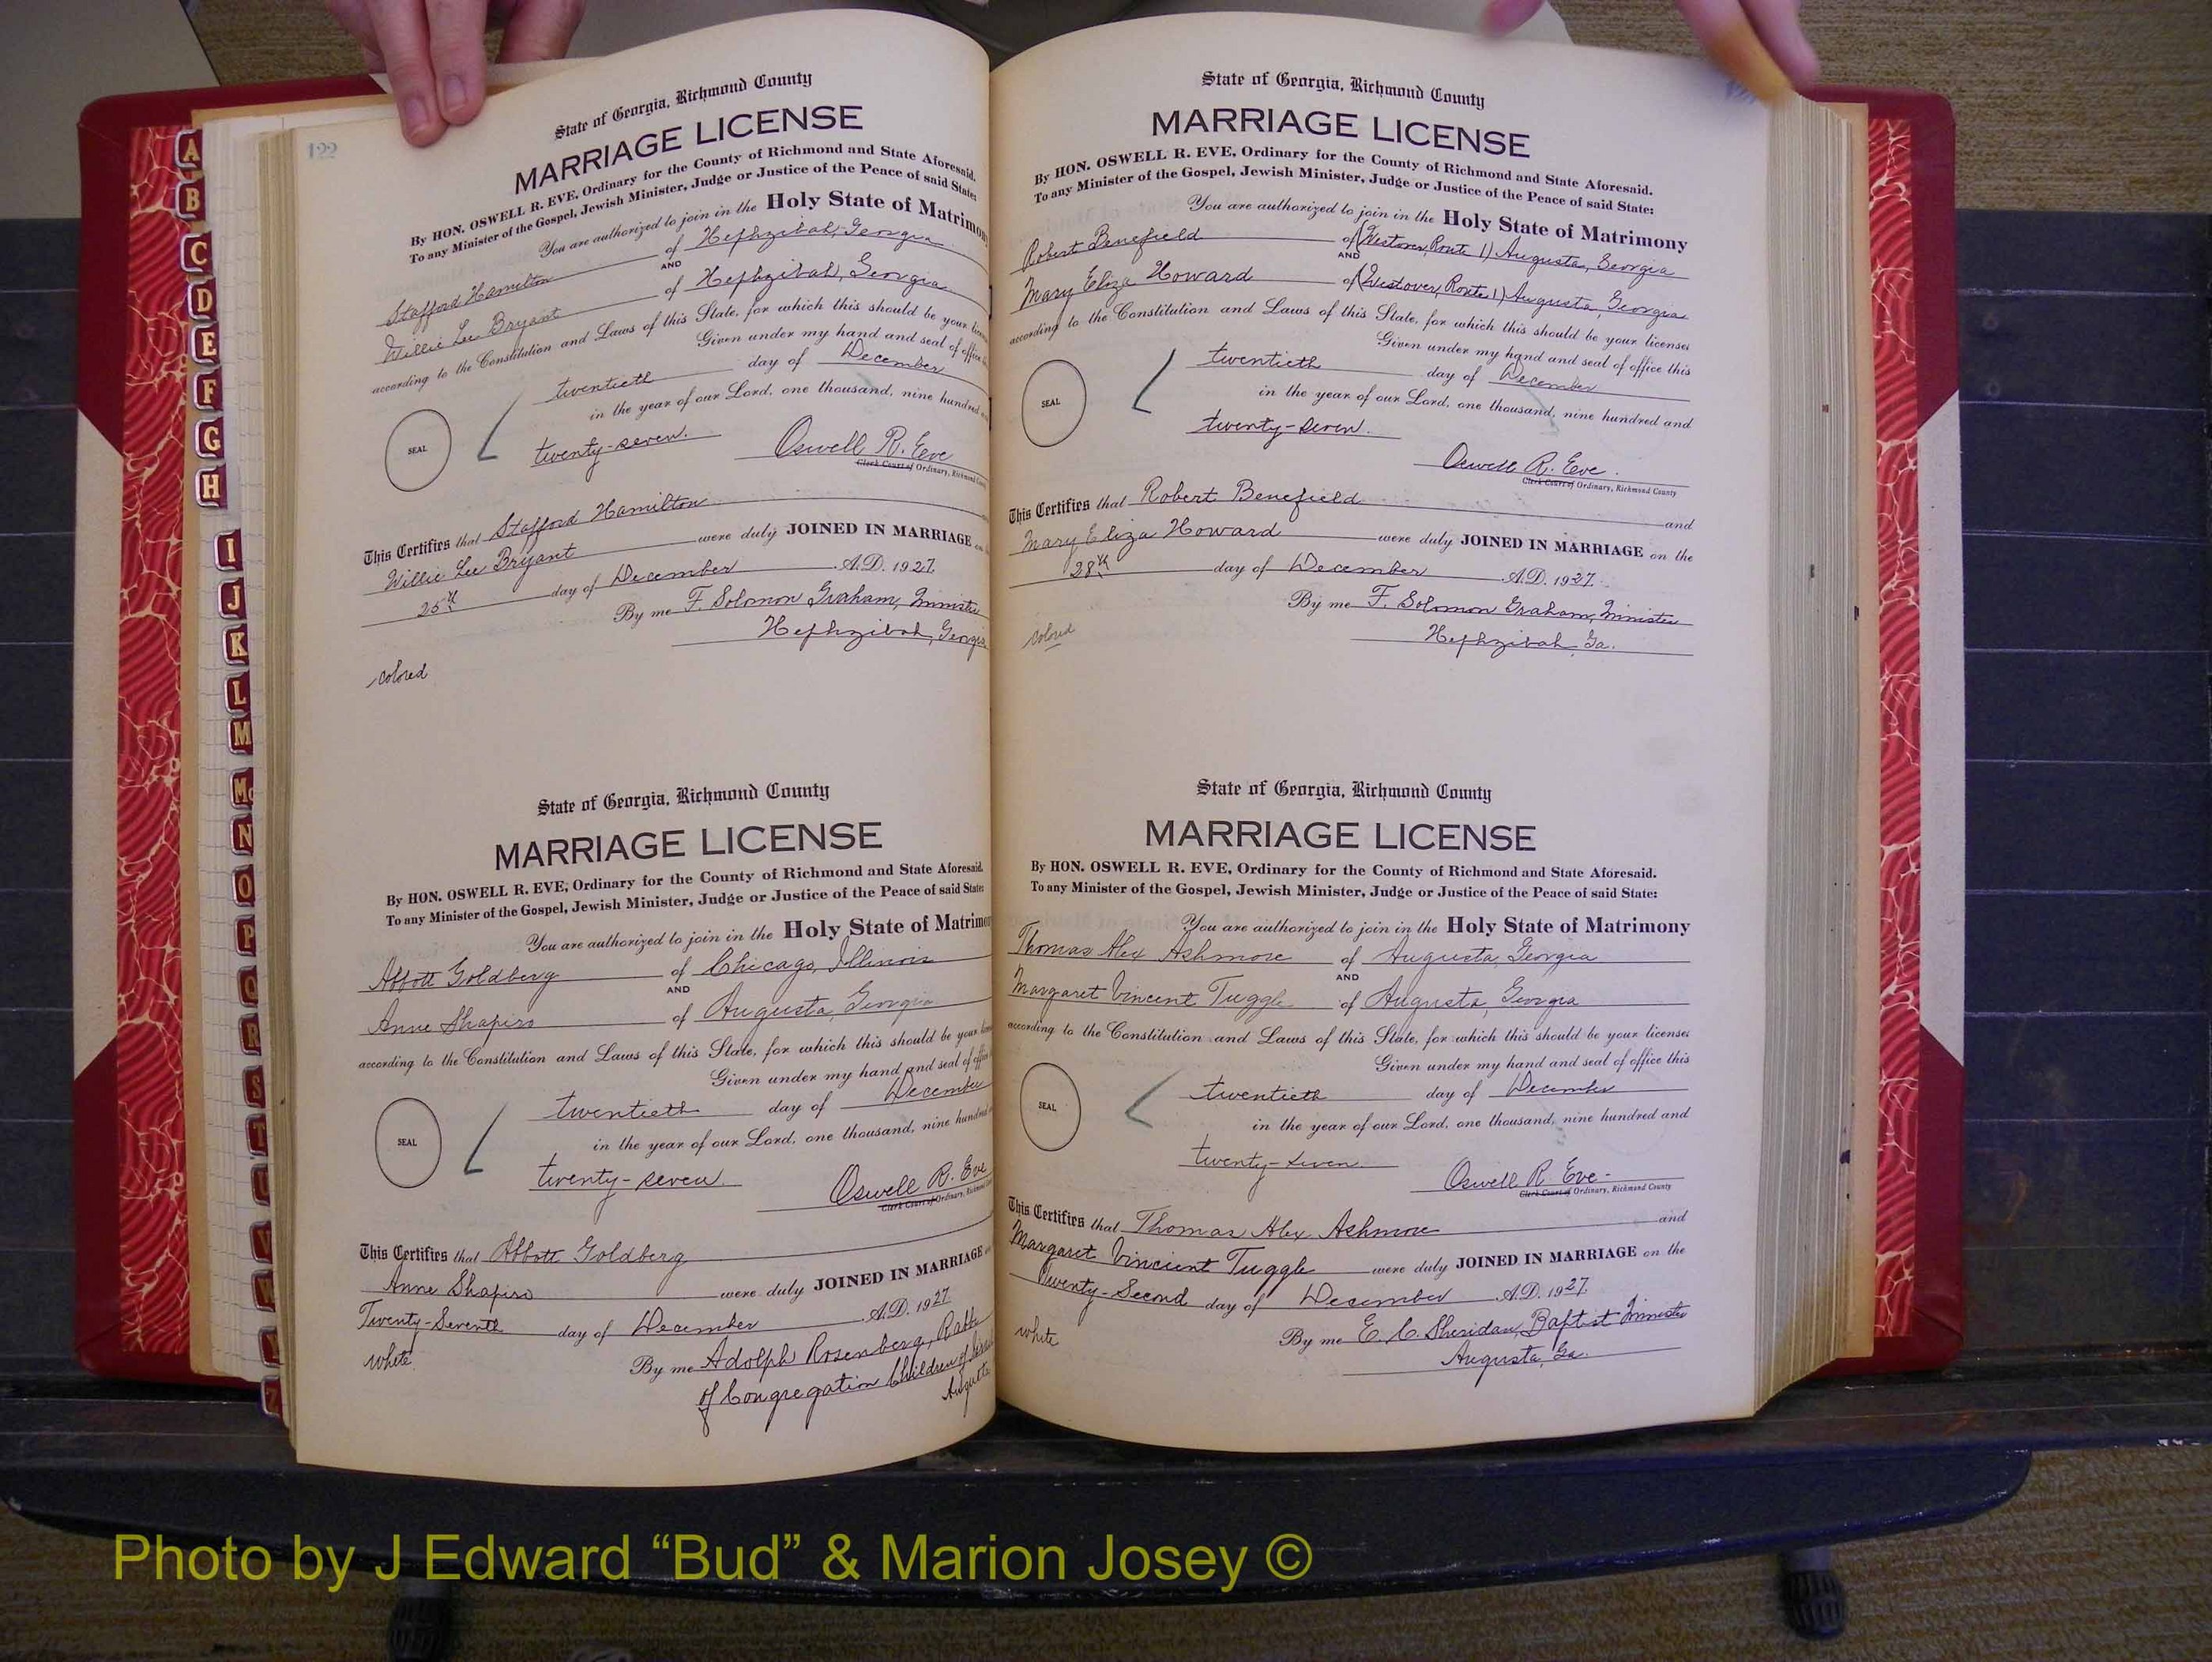 122
State of Georgia, Richmond County
MARRIAGE LICENSE
By HON. OSWELL R. EVE, Ordinary for the County of Richmond and State Aforesaid.
To any Minister of the Gospel, Jewish Minister, Judge or Justice of the Peace of said State:
You are authorized to join in the Holy State of Matrimony
Stafford Hamilton of Hephzibah, Georgia
AND
Willie Lee Bryant of Hephzibah, Georgia
according to the Constitution and Laws of this State, for which this should be your
Given under my hand and seal of office
twentieth day of December
in the year of our Lord, one thousand, nine hundred
twenty-seven.
SEAL
Oswell R. Eve
Clerk Court of Ordinary, Richmond
This Certifies that Stafford Hamilton
Willie Lee Bryant were duly JOINED IN MARRIAGE
25th day of December A.D. 1927.
By me F. Solomon Graham, Minister
Hephzibah, Georgia
colored
State of Georgia, Richmond County
MARRIAGE LICENSE
By HON. OSWELL R. EVE, Ordinary for the County of Richmond and State Aforesaid.
To any Minister of the Gospel, Jewish Minister, Judge or Justice of the Peace of said State:
You are authorized to join in the Holy State of Matrimo
Abbott Goldberg of Chicago, Illinois
AND
Anne Shapiro of Augusta, Georgia
according to the Constitution and Laws of this State, for which this should be your
Given under my hand and seal of
twentieth day of December
in the year of our Lord, one thousand, nine hundred
twenty-seven.
SEAL
Oswell R. Eve
Clerk Court of Ordinary, Richmond
This Certifies that Abbott Goldberg
Anne Shapiro were duly JOINED IN MARRIAGE
Twenty-Seventh day of December A.D. 1927
white
By me Adolph Rosenberg, Rabbi
of Congregation Children of Israel
Augusta
State of Georgia, Richmond County
MARRIAGE LICENSE
By HON. OSWELL R. EVE, Ordinary for the County of Richmond and State Aforesaid.
To any Minister of the Gospel, Jewish Minister, Judge or Justice of the Peace of said State:
You are authorized to join in the Holy State of Matrimony
Robert Benefield of (Westover, Route 1) Augusta, Georgia
AND
Mary Eliza Howard of (Westover, Route 1) Augusta, Georgia
according to the Constitution and Laws of this State, for which this should be your licenses
Given under my hand and seal of office this
twentieth day of December
in the year of our Lord, one thousand, nine hundred and
twenty-seven.
SEAL
Oswell R. Eve.
Clerk Court of Ordinary, Richmond County
This Certifies that Robert Benefield and
Mary Eliza Howard were duly JOINED IN MARRIAGE on the
28th day of December A.D. 1927.
By me F. Solomon Graham, Minister
Hephzibah, Ga.
colored
State of Georgia, Richmond County
MARRIAGE LICENSE
By HON. OSWELL R. EVE, Ordinary for the County of Richmond and State Aforesaid.
To any Minister of the Gospel, Jewish Minister, Judge or Justice of the Peace of said State:
You are authorized to join in the Holy State of Matrimony
Thomas Alex Ashmore of Augusta, Georgia
AND
Margaret Vincent Tuggle of Augusta, Georgia
according to the Constitution and Laws of this State, for which this should be your licenses
Given under my hand and seal of office this
twentieth day of December
in the year of our Lord, one thousand, nine hundred and
twenty-seven.
SEAL
Oswell R. Eve-
Clerk Court of Ordinary, Richmond County
This Certifies that Thomas Alex Ashmore and
Margaret Vincient Tuggle were duly JOINED IN MARRIAGE on the
Twenty-Second day of December A.D. 1927.
white
By me E. C. Sheridan, Baptist Minister
Augusta, Ga.
A
B
C
D
E
F
G
H
I
J
K
L
M
Mc
N
O
P
Q
R
S
T
U
V
W
Z
Photo by J Edward “Bud” & Marion Josey ©